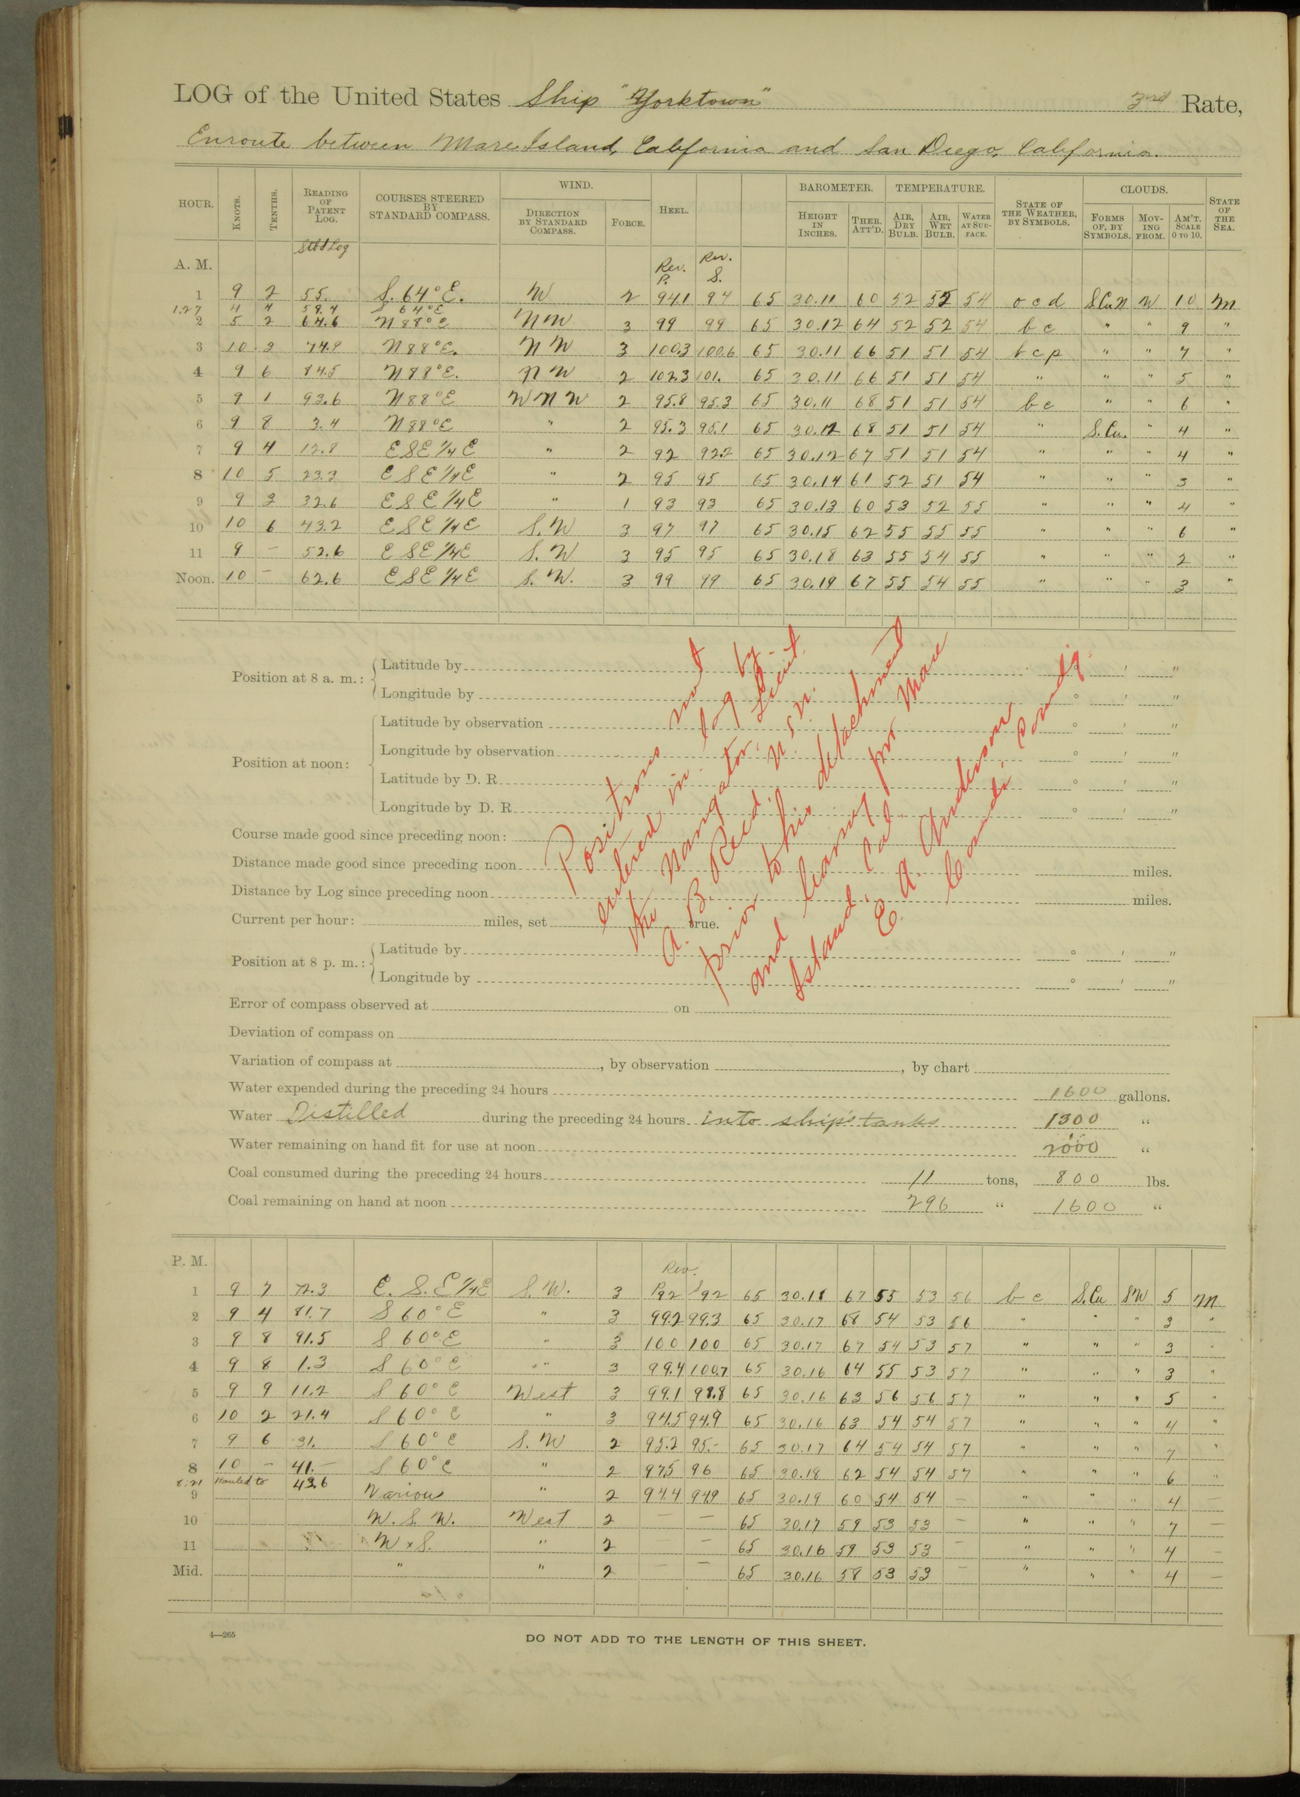 LOG of the United States Ship "Yorktown" 3rd Rate,
Enroute between Mare Island, California and San Diego, California.
HOUR. KNOTS. TENTHS. READING OF PATENT LOG. COURSES STEERED BY STANDARD COMPASS. WIND. DIRECTION BY STANDARD COMPASS. FORCE. HEEL. BAROMETER. HEIGHT IN INCHES. THER. ATT'D. TEMPERATURE. AIR, DRY BULB. AIR, WET BULB. WATER AT SURFACE. STATE OF THE WEATHER, BY SYMBOLS. CLOUDS. FORMS OF, BY SYMBOLS. MOVING FROM. AM'T. SCALE 0 TO 10. STATE OF THE SEA.
A. M. Stbd Log Rev. P. Rev. S.
1 9 2 55. S. 64° E. W 2 94.1 94 65 30.11 60 52 52 54 o c d S.Cu.N W 10 M
1.27 4 4 59.4 S 64° E
2 5 2 64.6 N 88° E NW 3 99 99 65 30.12 64 52 52 54 b c " " 9 "
3 10 3 74.9 N 88° E. NW 3 100.3 100.6 65 30.11 66 51 51 54 b c p " " 7 "
4 9 6 84.5 N 88° E. NW 2 102.3 101. 65 30.11 66 51 51 54 " " " 5 "
5 9 1 93.6 N 88° E WNW 2 95.8 95.3 65 30.11 68 51 51 54 b c " " 6 "
6 9 8 3.4 N 88° E " 2 95.3 95.1 65 30.12 68 51 51 54 " S.Cu. " 4 "
7 9 4 12.8 ESE ¼ E " 2 92 92.2 65 30.12 67 51 51 54 " " " 4 "
8 10 5 23.3 ESE ¼ E " 2 95 95 65 30.14 61 52 51 54 " " " 3 "
9 9 3 32.6 ESE ¼ E " 1 93 93 65 30.13 60 53 52 55 " " " 4 "
10 10 6 43.2 ESE ¼ E S.W 3 97 97 65 30.15 62 55 55 55 " " " 6 "
11 9 – 52.6 ESE ¼ E S.W 3 95 95 65 30.18 63 55 54 55 " " " 2 "
Noon. 10 – 62.6 ESE ¼ E S.W. 3 99 99 65 30.19 67 55 54 55 " " " 3 "
Position at 8 a. m.: Latitude by ° ' "
Longitude by ° ' "
Position at noon: Latitude by observation ° ' "
Longitude by observation ° ' "
Latitude by D. R. ° ' "
Longitude by D. R. ° ' "
Course made good since preceding noon:
Distance made good since preceding noon miles.
Distance by Log since preceding noon miles.
Current per hour: miles, set true.
Position at 8 p. m.: Latitude by ° ' "
Longitude by ° ' "
Positions not
entered in log by
the Navigator, Lieut.
A. B. Reed, U.S.N.
prior to his detachment
and leaving for Mare
Island, Cal.
E. A. Anderson
Comdr. Comdg.
Error of compass observed at on
Deviation of compass on
Variation of compass at , by observation , by chart
Water expended during the preceding 24 hours 1600 gallons.
Water Distilled during the preceding 24 hours into ship's tanks 1300 "
Water remaining on hand fit for use at noon 2000 "
Coal consumed during the preceding 24 hours 11 tons, 800 lbs.
Coal remaining on hand at noon 296 " 1600 "
P. M. Rev.
1 9 7 72.3 E. S. E ¼ E S.W. 3 P92 S92 65 30.18 67 55 53 56 b c S.Cu SW 5 M
2 9 4 81.7 S 60° E " 3 99.2 99.3 65 30.17 68 54 53 56 " " " 3 "
3 9 8 91.5 S 60° E " 3 100 100 65 30.17 67 54 53 57 " " " 3 "
4 9 8 1.3 S 60° E " 3 99.4 100.7 65 30.16 64 55 53 57 " " " 3 "
5 9 9 11.2 S 60° E West 3 99.1 98.8 65 30.16 63 56 56 57 " " " 5 "
6 10 2 21.4 S 60° E " 3 94.5 94.9 65 30.16 63 54 54 57 " " " 4 "
7 9 6 31. S 60° E S.W 2 95.2 95.– 65 30.17 64 54 54 57 " " " 7 "
8 10 – 41.– S 60° E " 2 97.5 96 65 30.18 62 54 54 57 " " " 6 "
8:21 Hauled to 43.6
9 Various " 2 94.4 94.9 65 30.19 60 54 54 – " " " 4 –
10 W. S. W. West 2 – – 65 30.17 59 53 53 – " " " 7 –
11 W x S. " 2 – – 65 30.16 59 53 53 – " " " 4 –
Mid. " " 2 – – 65 30.16 58 53 53 – " " " 4 –
4—265
DO NOT ADD TO THE LENGTH OF THIS SHEET.